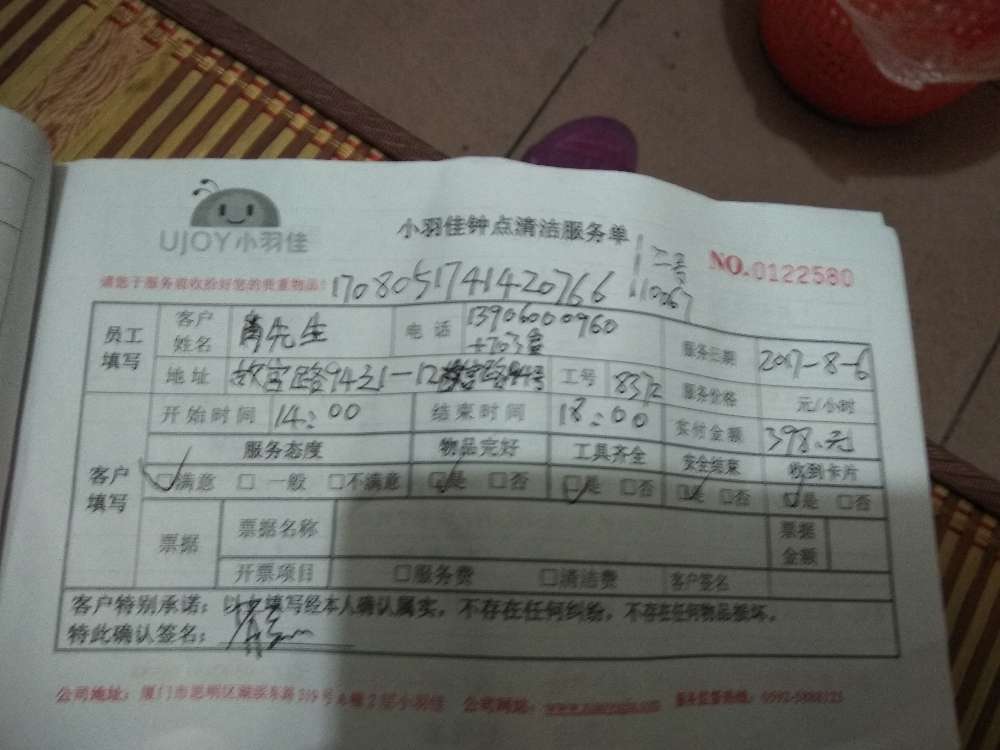 UJOY小羽佳
小羽佳钟点清洁服务单
NO.0122580
二号
请您于服务前收拾好您的贵重物品!
1708051741420766
110267
员工填写
客户姓名
先生
电话
13906000960
服务日期
2017-8-6
地址
工号
8372
服务价格
元/小时
客户填写
开始时间
14:00
结束时间
18:00
实付金额
398.元
服务态度
物品完好
工具齐全
安全结束
收到卡片
☑满意 □ 一般 □不满意
☑是 □否
☑是 □否
☑是 □否
☑是 □否
票据
票据名称
票据金额
开票项目
□服务费
□清洁费
客户签名
客户特别承诺:以上填写经本人确认属实,不存在任何纠纷,不存在任何物品损坏。
特此确认签名:
公司地址:厦门市思明区 2层小羽佳
公司网站:
服务监督热线: